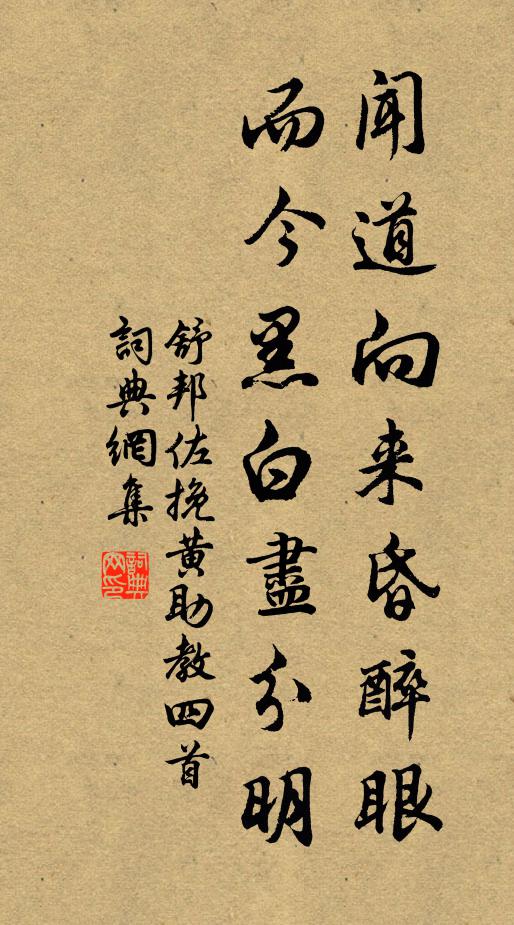 闻道向来昏醉眼
而今黑白盡分明
舒邦佐挽黄助教四首
詞典網集
詞典網印